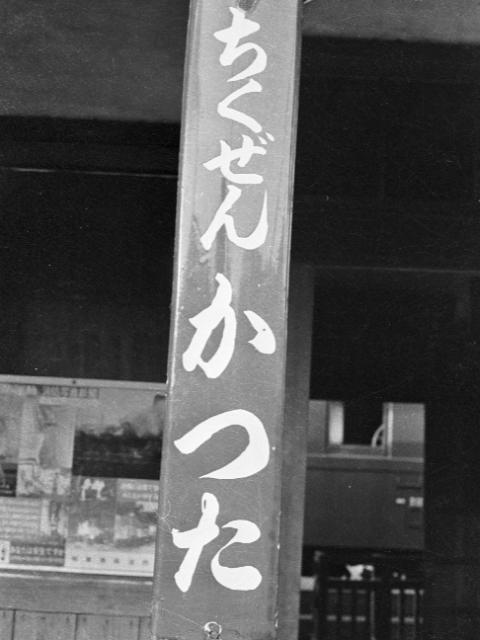 ちくぜん
かつた